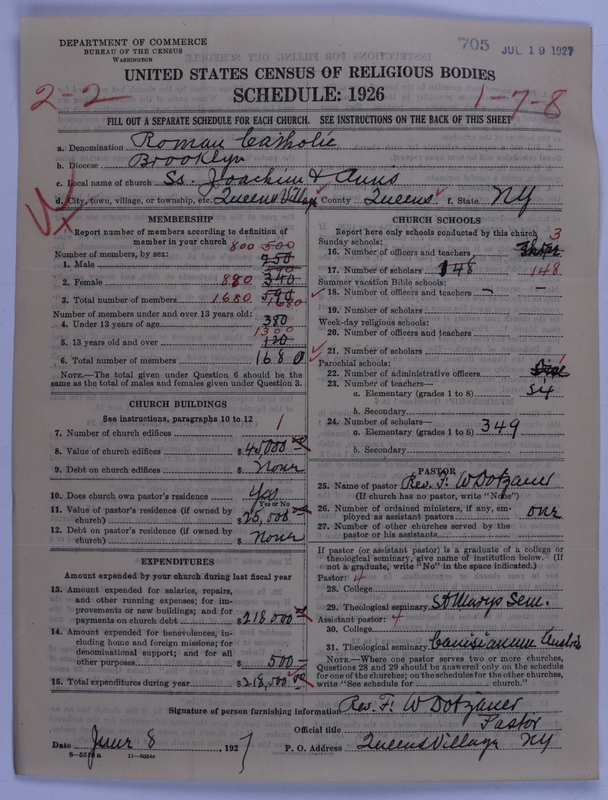 DEPARTMENT OF COMMERCE
BUREAU OF THE CENSUS
WASHINGTON
705 JUL 19 1927
UNITED STATES CENSUS OF RELIGIOUS BODIES
SCHEDULE: 1926
2-2 1-7-8
FILL OUT A SEPARATE SCHEDULE FOR EACH CHURCH. SEE INSTRUCTIONS ON THE BACK OF THIS SHEET
a. Denomination Roman Catholic
b. Diocese Brooklyn
c. Local name of church Ss. Joachim & Anns
d. City, town, village, or township, etc. Queens Village County Queens f. State NY
MEMBERSHIP
Report number of members according to definition of member in your church
Number of members, by sex: 800 500
1. Male 250
2. Female 880 340
3. Total number of members 1680 590 1680
Number of members under and over 13 years old:
4. Under 13 years of age 380
1300
5. 13 years old and over 120
6. Total number of members 1680
NOTE.—The total given under Question 6 should be
same as the total of males and females given under Question 3.
CHURCH BUILDINGS
See instructions, paragraphs 10 to 12
7. Number of church edifices 1
8. Value of church edifices $ 45,000
9. Debt on church edifices $ None
10. Does church own pastor's residence Yes
Yes or No
11. Value of pastor's residence (if owned by
church) $ 25,000
12. Debt on pastor's residence (if owned by
church) $ None
EXPENDITURES
Amount expended by your church during last fiscal year
13. Amount expended for salaries, repairs,
and other running expenses; for im-
provements or new buildings; and for
payments on church debt $ 218,000
14. Amount expended for benevolences, in-
cluding home and foreign missions; for
denominational support; and for all
other purposes $ 500
15. Total expenditures during year $ 218,500
CHURCH SCHOOLS
Report here only schools conducted by this church
Sunday schools: 3
16. Number of officers and teachers
17. Number of scholars 148 148
Summer vacation Bible schools:
18. Number of officers and teachers – –
19. Number of scholars
Week-day religious schools:
20. Number of officers and teachers
21. Number of scholars
Parochial schools: 1
22. Number of administrative officers
23. Number of teachers—
a. Elementary (grades 1 to 8) six
b. Secondary
24. Number of scholars—
a. Elementary (grades 1 to 8) 349
b. Secondary
PASTOR
25. Name of pastor Rev. F. W Dotzauer
(If church has no pastor, write "None")
26. Number of ordained ministers, if any, em-
ployed as assistant pastors one
27. Number of other churches served by the
pastor or his assistants
If pastor (or assistant pastor) is a graduate of a college or
theological seminary, give name of institution below. (If
not a graduate, write "No" in the space indicated.)
Pastor: 4
28. College
29. Theological seminary St Marys Sem.
Assistant pastor: 4
30. College
31. Theological seminary Canisianum Austria
NOTE.—Where one pastor serves two or more churches,
Questions 28 and 29 should be answered only on the schedule
for one of the churches; on the schedules for the other churches,
write "See schedule for church."
Signature of person furnishing information Rev. F. W Dotzauer
Official title Pastor
Date June 8, 1927 P. O. Address Queens Village NY
8-5539a